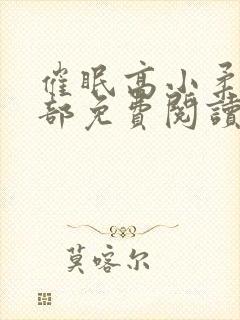 催眠高小柔
部免費閱讀
莫喀尔